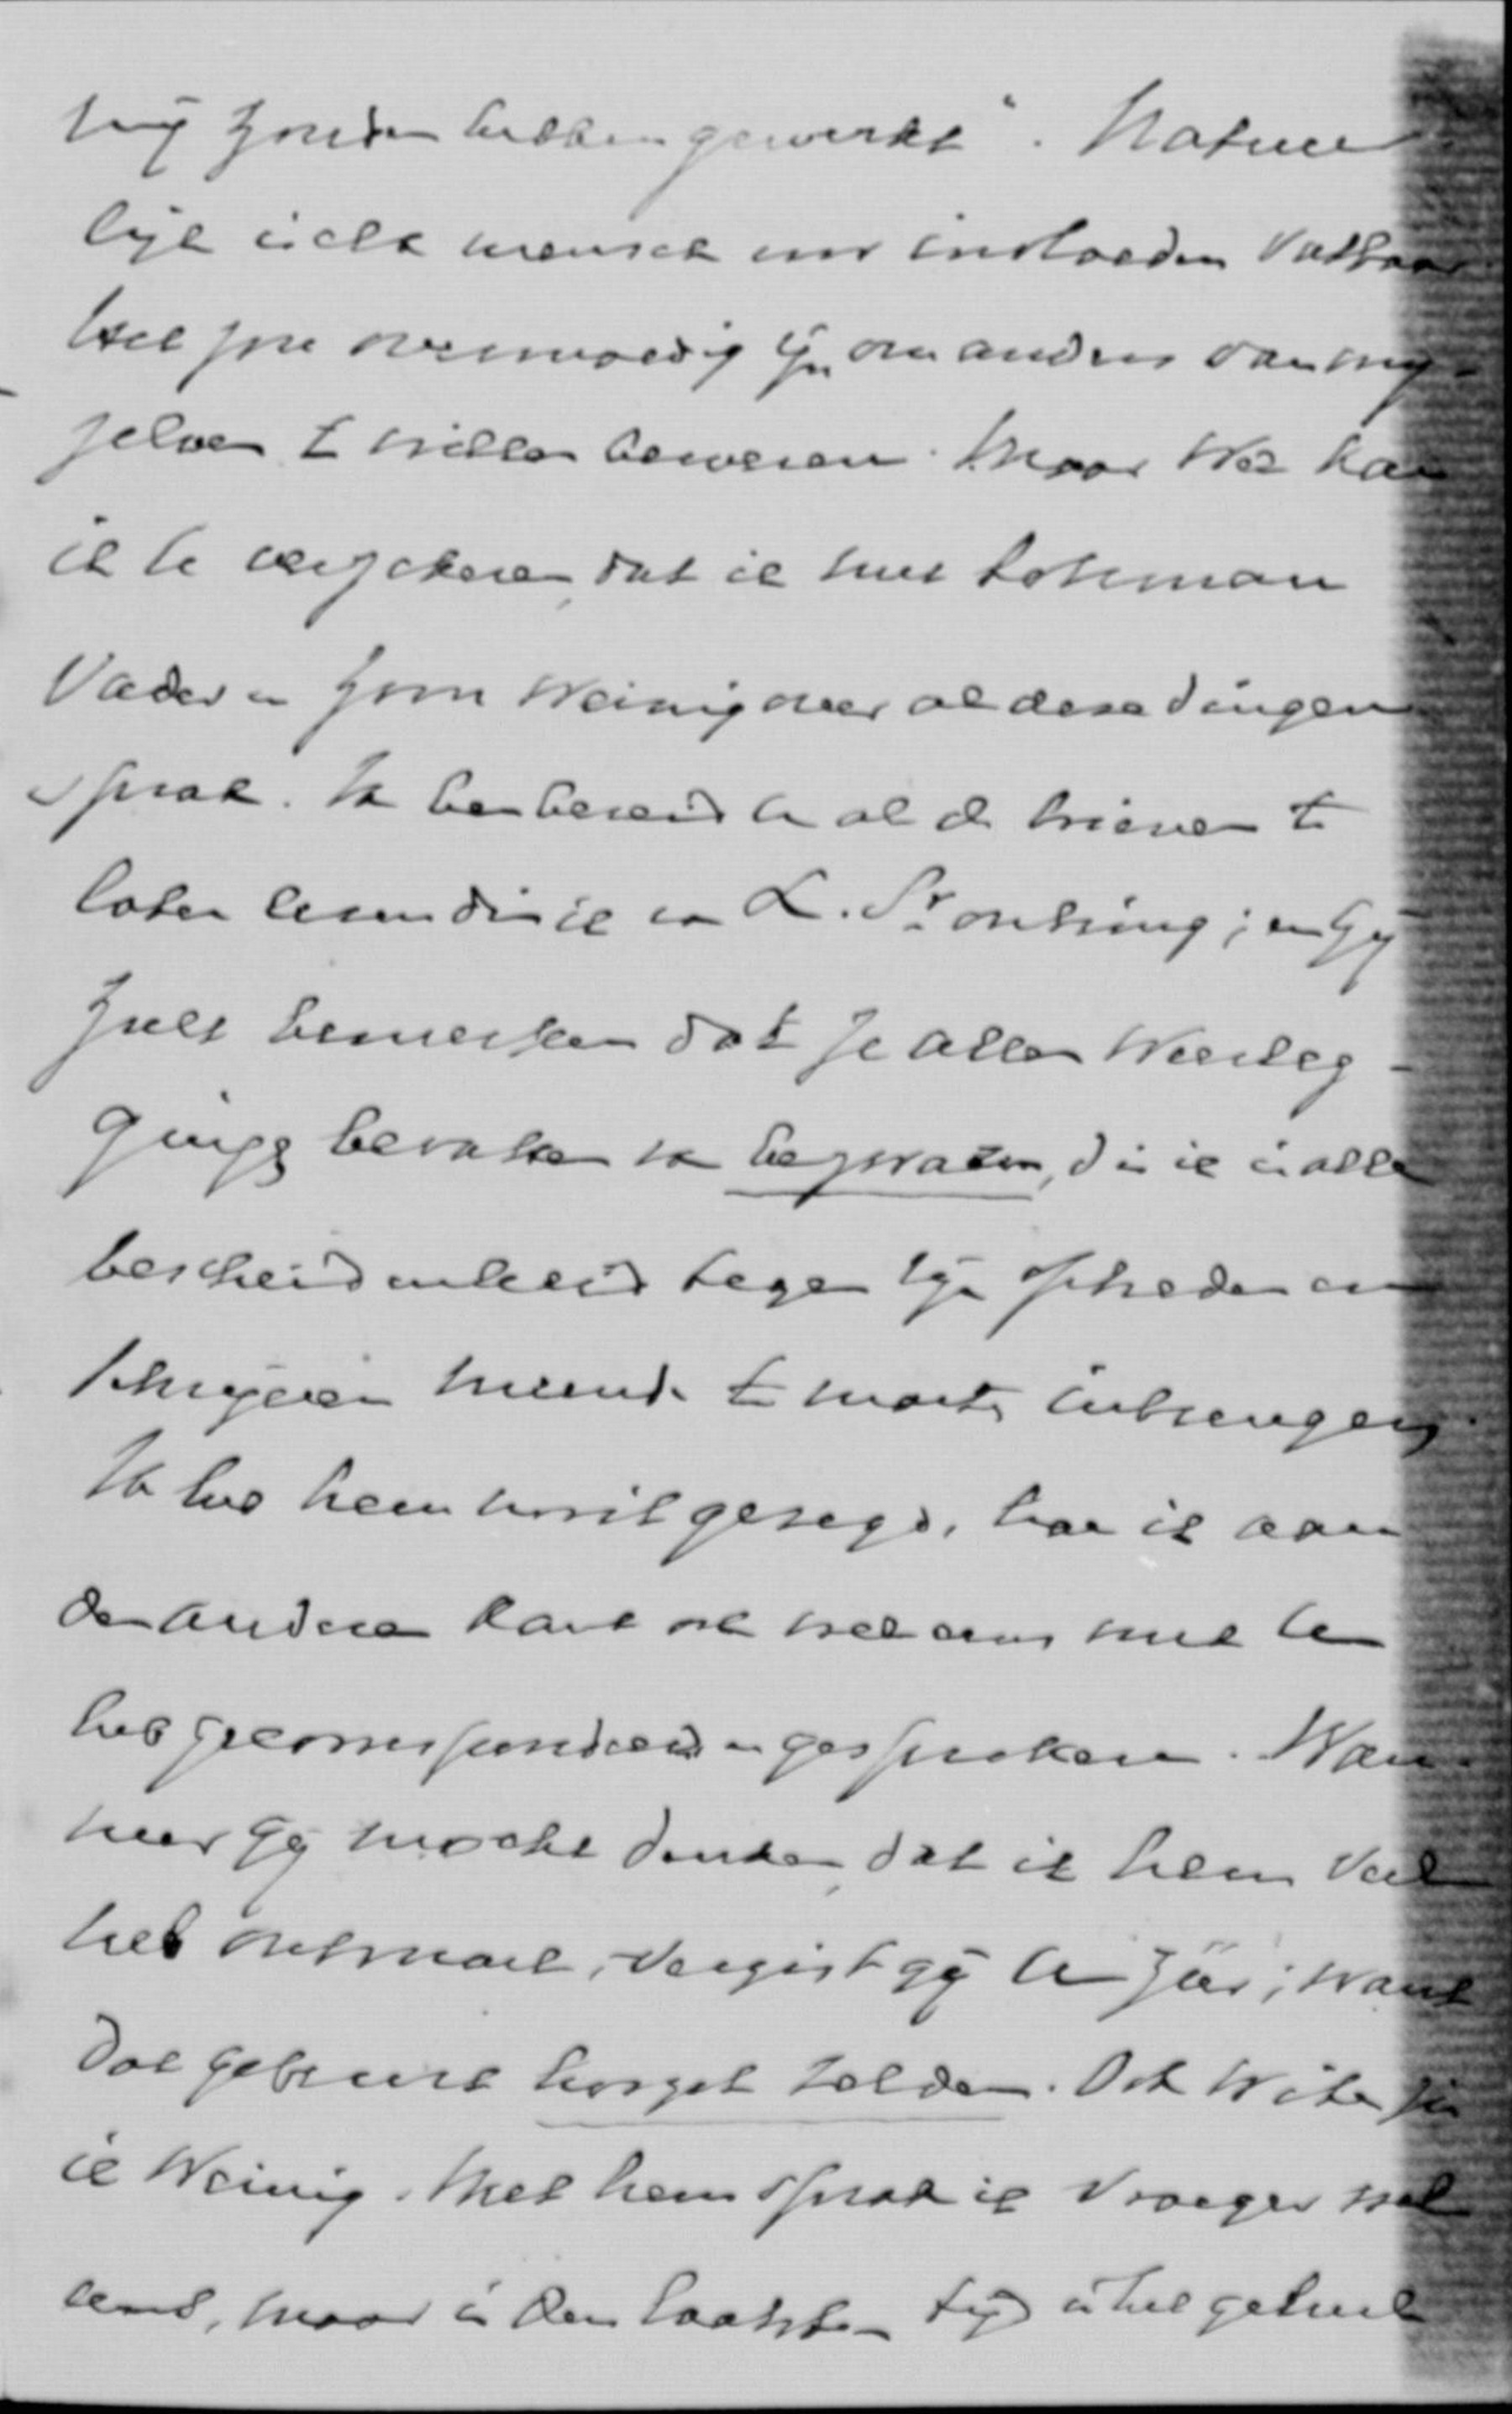 mij zouden hebben gewerkt". Natuur
lijk is elk mensch voor invloeden vatbaar
Het zou overmoedig zijn om anders van mij-
zelven te willen beweren. Maar wel kan
ik U verzekeren, dat ik met Lohman
Vader en Zoon weinig over al deze dingen
sprak. Ik ben bereid U al de brieven te
laten lezen die ik van L. Sr. ontving; en Gij
zult bemerken dat ze allen weerleg-
gings bevatten van bezwaren, die ik in alle
bescheidenheid tegen zijn optreden en
schrijven meende te moeten inbrengen.
Ik heb hem nooit gezegd, hoe ik aan
den anderen kant ook wel eens met U
heb gecorrespondeerd en gesproken. Wan-
neer Gij mocht denken, dat ik hem veel
heb ontmoet, vergist gij U zeer; want
dat gebeurt hoogst zelden. Ook
ik weinig. Met hem sprak ik vroeger wel
eens, maar in den laatsten tijd is het geheel